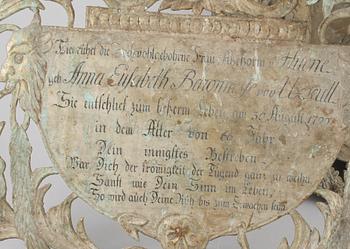 Hier ruhet die Hochwohlgebohrne Frau Majorin v: Thüne
geb: Anna Elisabeth Baronin
Sie entschlief zum beßern Leben am 30 August 1797
in dem Alter von 66 Jahr
Dein innigstes Bestreben
War Dich der frömigkeit der Tugend ganz zu weihn
Sanft wie Dein Sinn im Leben,
So wird auch Deine Ruh bis zum Erwachen seyn